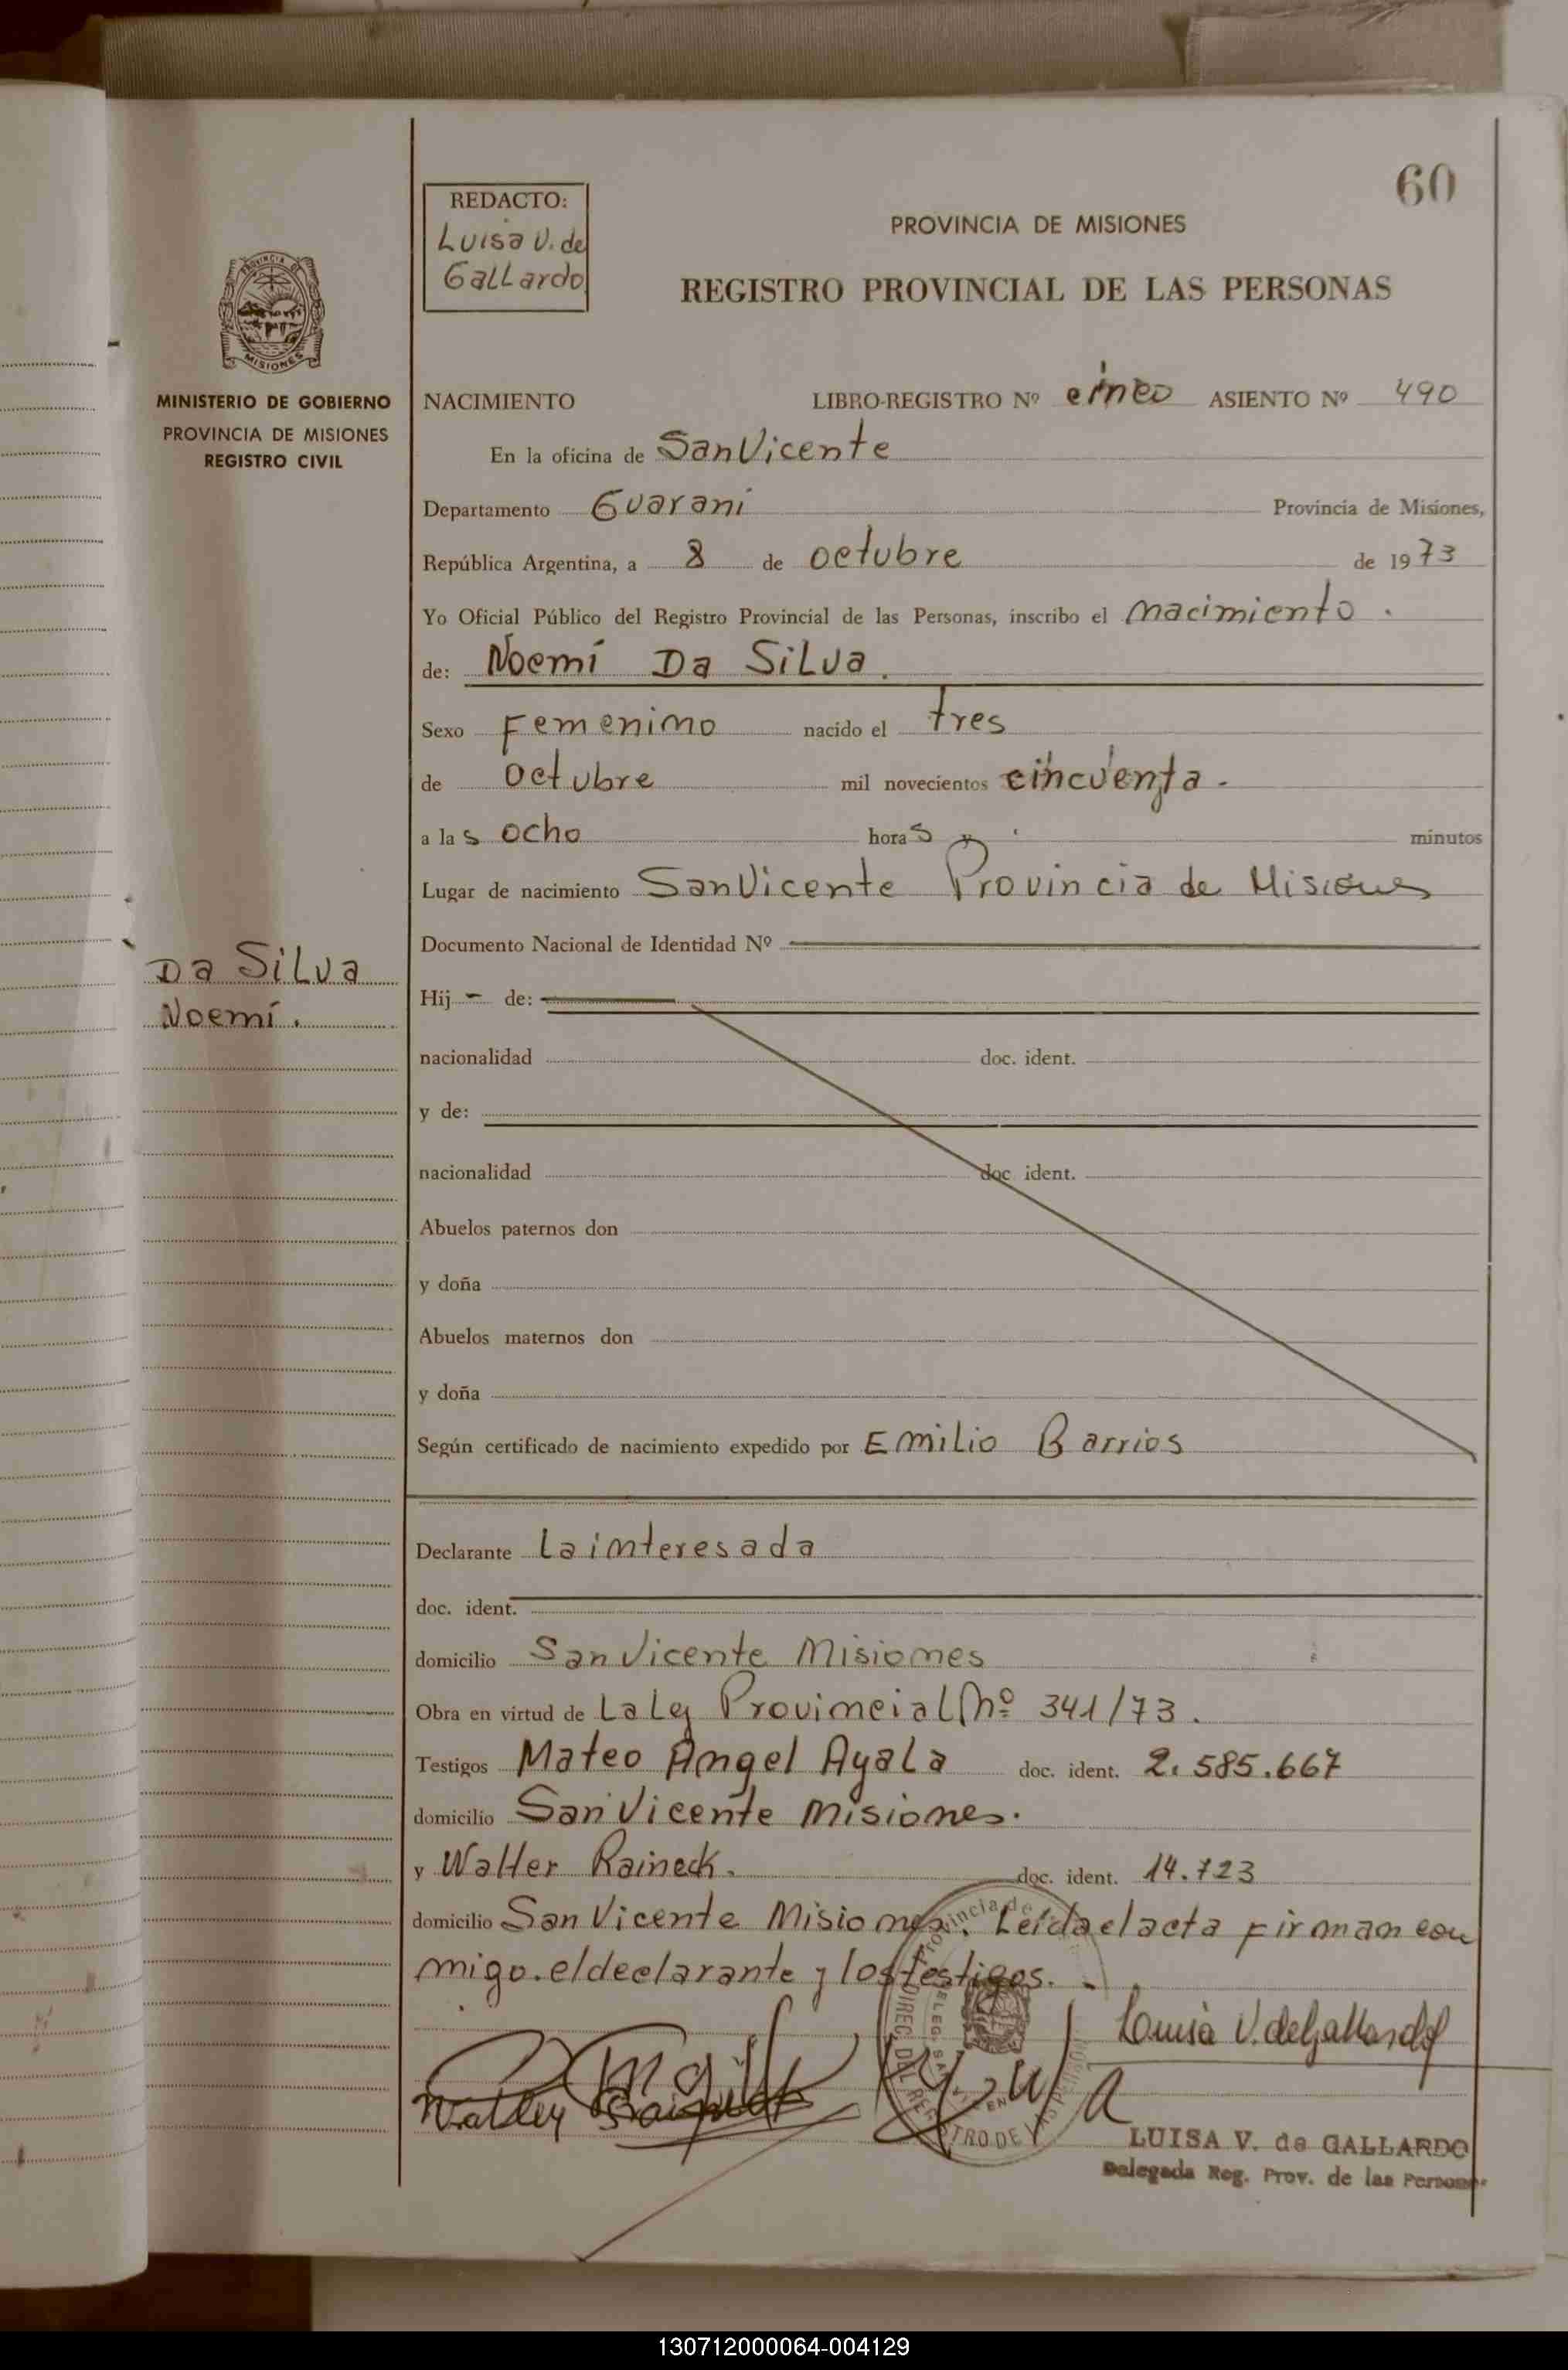 60
REDACTO:
Luisa V. de
Gallardo
PROVINCIA DE MISIONES
REGISTRO PROVINCIAL DE LAS PERSONAS
PROVINCIA DE
MISIONES
MINISTERIO DE GOBIERNO
PROVINCIA DE MISIONES
REGISTRO CIVIL
NACIMIENTO LIBRO-REGISTRO Nº cinco ASIENTO Nº 490
En la oficina de San Vicente
Departamento Guaraní Provincia de Misiones,
República Argentina, a 8 de octubre de 1973
Yo Oficial Público del Registro Provincial de las Personas, inscribo el nacimiento.
de: Noemí Da Silva.
Sexo Femenino nacido el tres
de octubre mil novecientos cincuenta.
a las ocho horas y minutos
Lugar de nacimiento San Vicente Provincia de Misiones
Documento Nacional de Identidad Nº
Da Silva
Noemí.
Hij - de:
nacionalidad doc. ident.
y de:
nacionalidad doc. ident.
Abuelos paternos don
y doña
Abuelos maternos don
y doña
Según certificado de nacimiento expedido por Emilio Barrios
Declarante La interesada
doc. ident.
domicilio San Vicente Misiones
Obra en virtud de La Ley Provincial Nº 341/73.
Testigos Mateo Angel Ayala doc. ident. 2.585.667
domicilio San Vicente Misiones.
y Walter Raineck. doc. ident. 14.723
domicilio San Vicente Misiones. Leída el acta firman con
migo. el declarante y los testigos.
Luisa V. de Gallardo
LUISA V. de GALLARDO
Delegada Reg. Prov. de las Personas
130712000064-004129